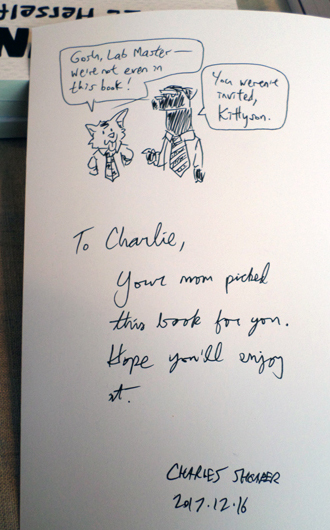 Gosh, Lab Master—
we're not even in
this book!
You weren't
invited,
Kittyson.
To Charlie,
Your mom picked
this book for you.
Hope you'll enjoy
it.
CHARLES
2017.12.16